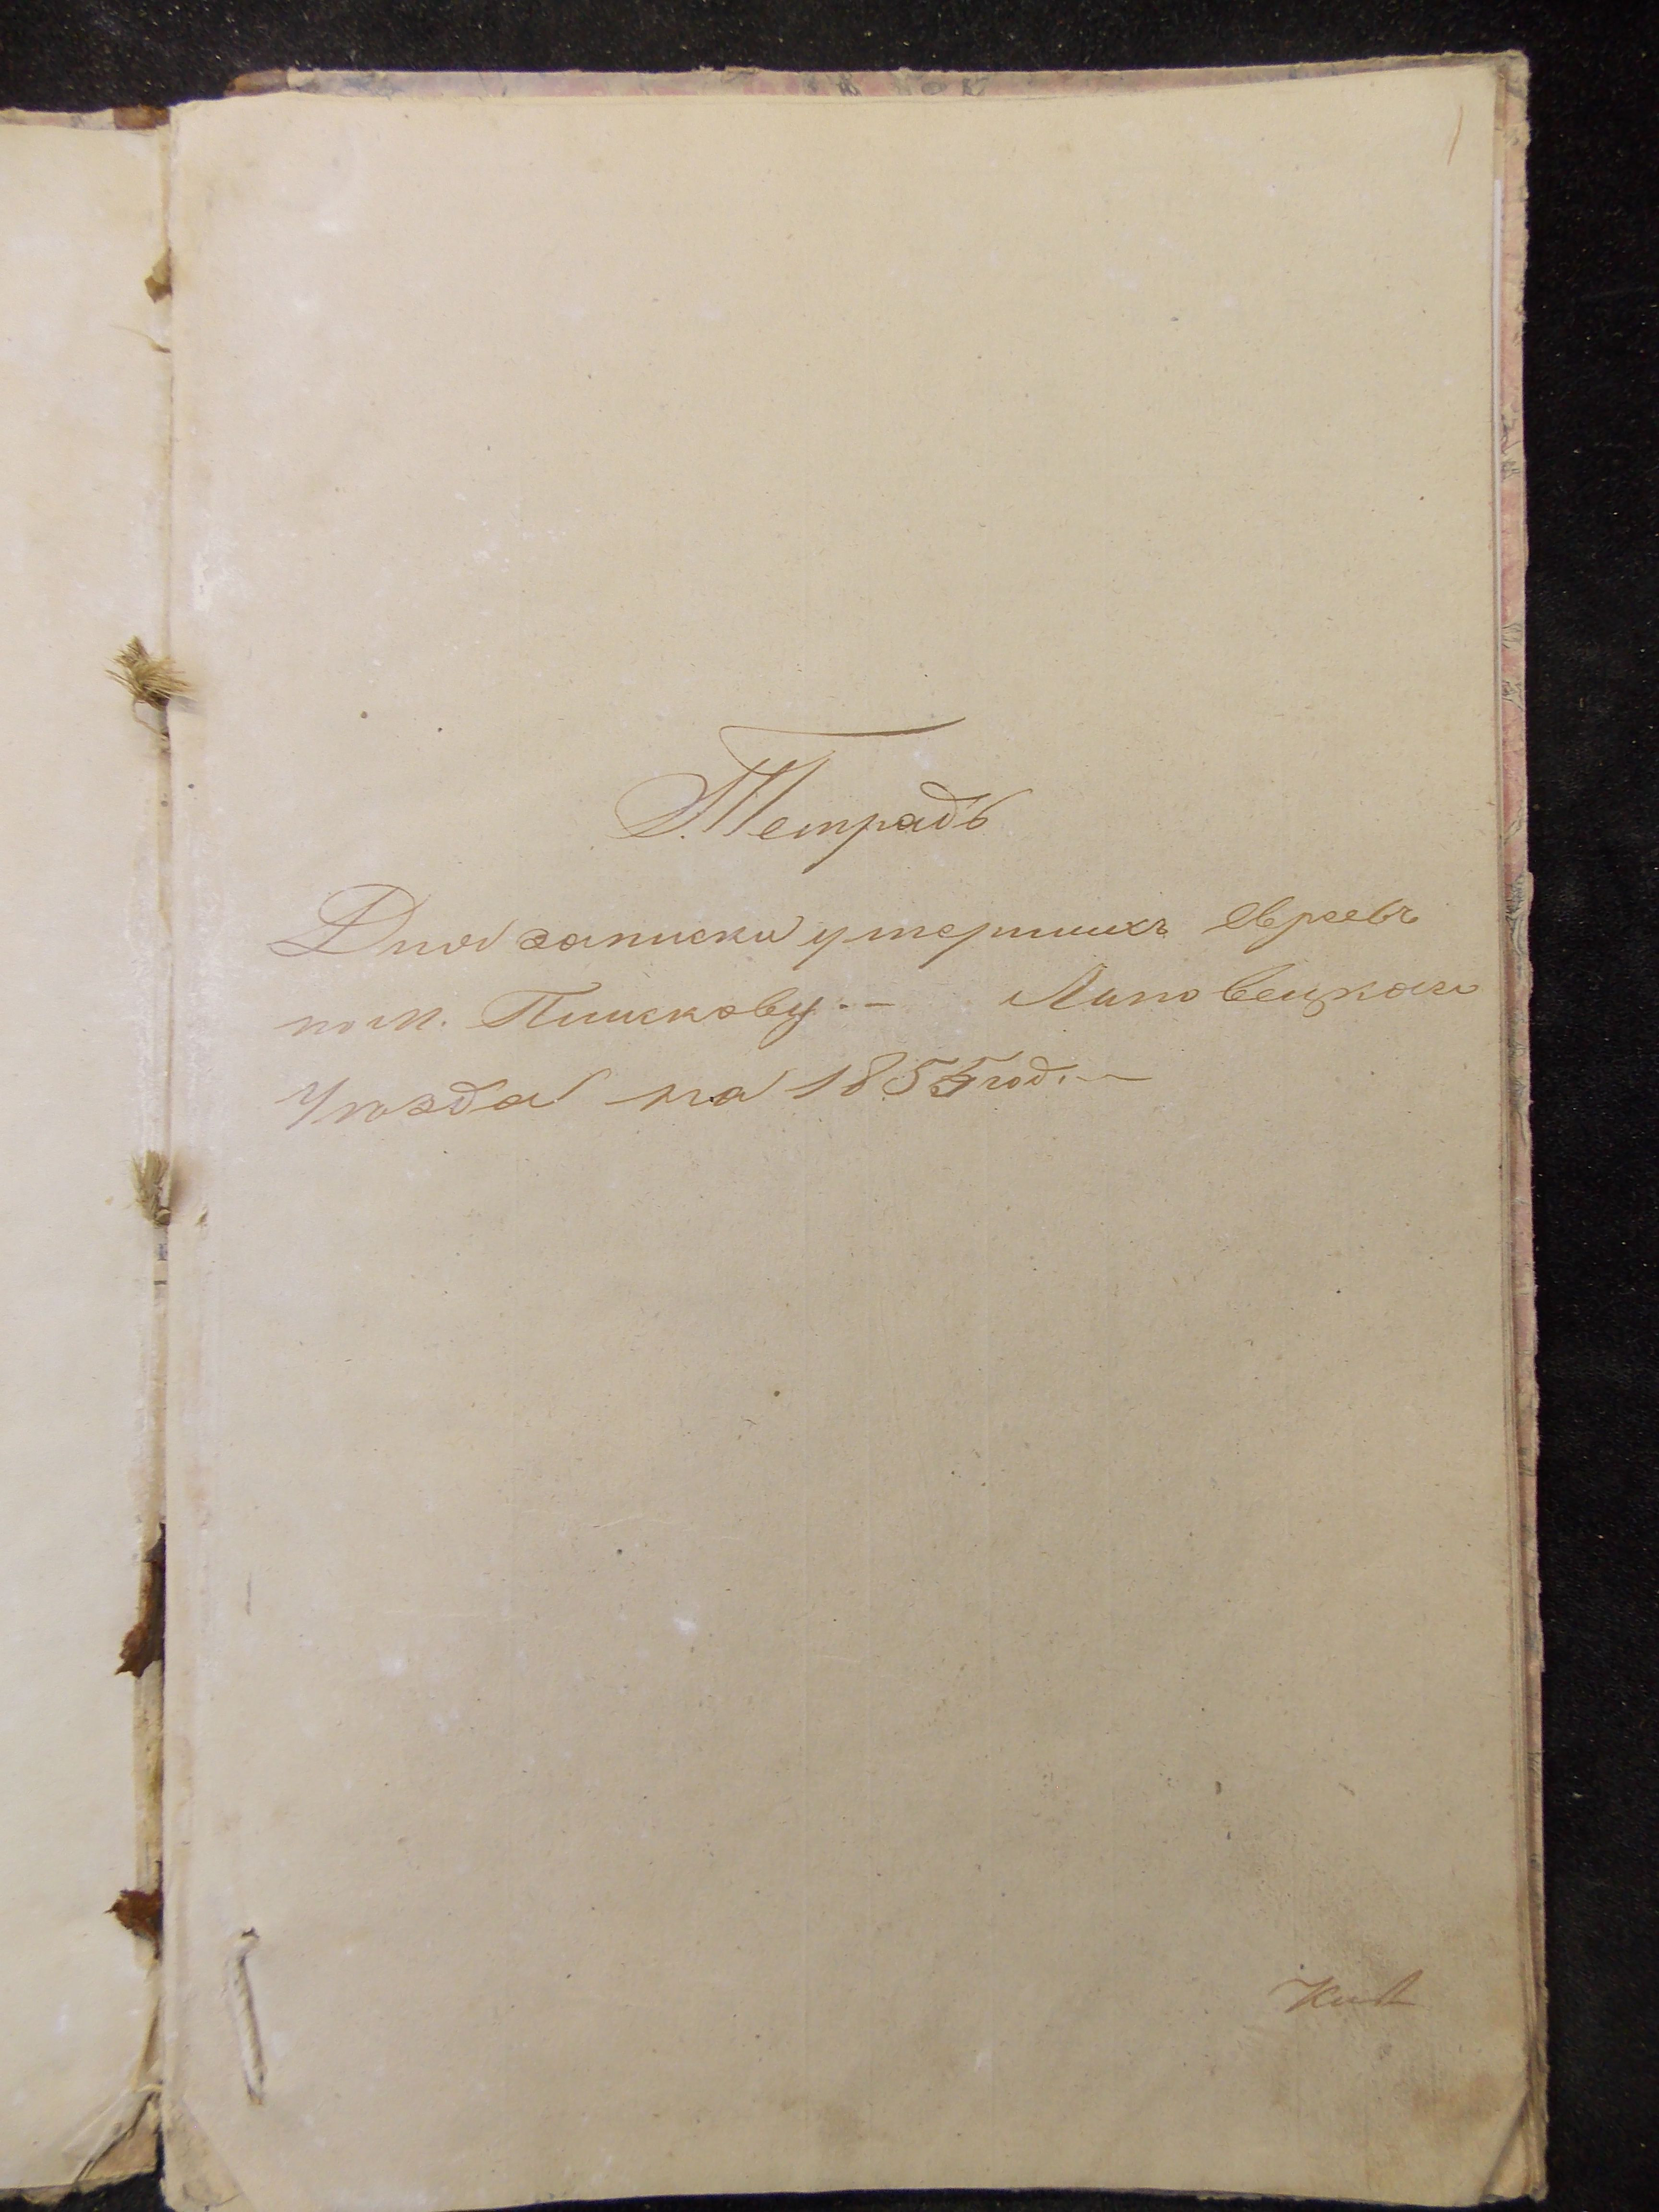 1
Тетрадь
Для записки умершихъ Евреевъ
по м. Пискову.— Липовецкаго
Уѣзда на 1855 год.—